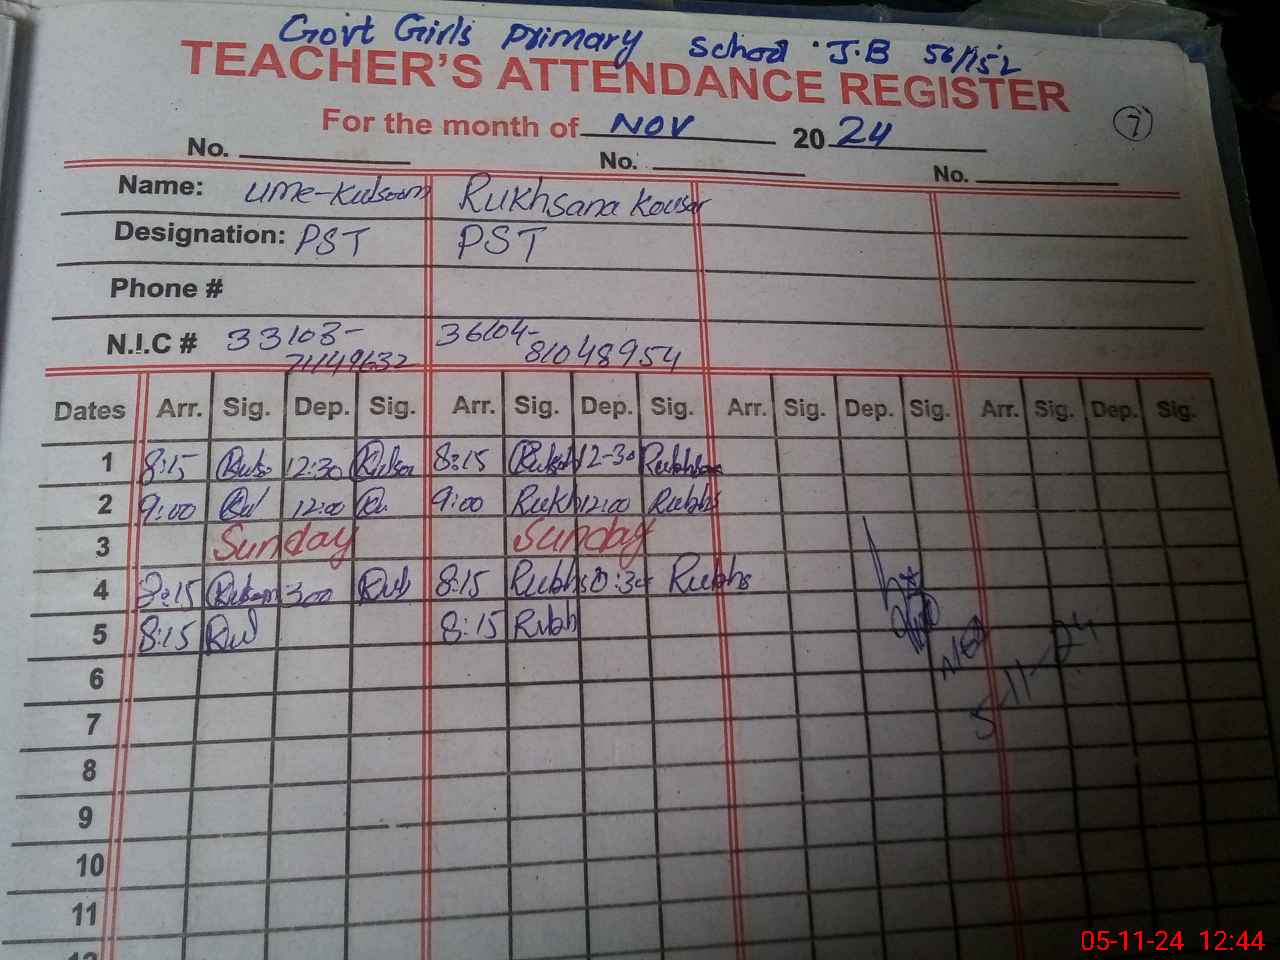 Govt Girls primary school J.B 56/15L
TEACHER'S ATTENDANCE REGISTER
For the month of NOV 2024
7
No. No. No.
Name: Ume-Kulsoom Rukhsana Kousar
Designation: PST PST
Phone #
N.I.C # 33103- 36104-
71149632 81048954
Dates Arr. Sig. Dep. Sig. Arr. Sig. Dep. Sig. Arr. Sig. Dep. Sig. Arr. Sig. Dep. Sig.
1 8:15 12:30 8:15 12-30
2 9:00 12:00 9:00 Rukh 12:00 Rubhs
3 Sunday Sunday
4 8:15 300 8:15 Rubhs Rubhs
5 8:15 8:15 Rubh
6
5-11-24
7
8
9
10
11
12
05-11-24 12:44